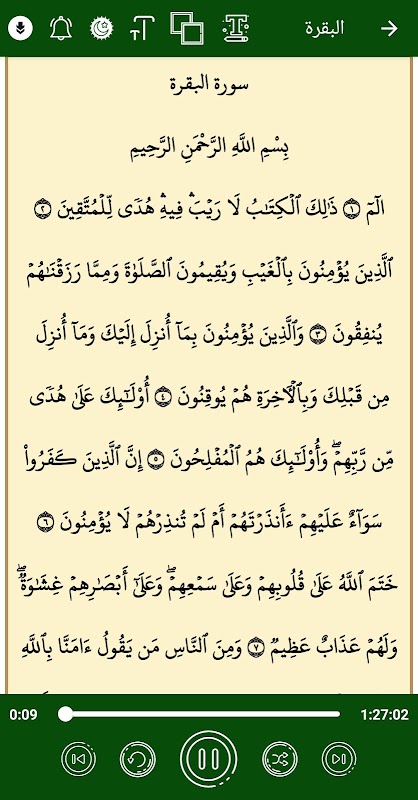 البقرة
سورة البقرة
بِسْمِ اللَّهِ الرَّحْمَنِ الرَّحِيمِ
الٓمٓ ١ ذَٰلِكَ ٱلْكِتَٰبُ لَا رَيْبَ ۛ فِيهِ ۛ هُدًى لِّلْمُتَّقِينَ ٢
ٱلَّذِينَ يُؤْمِنُونَ بِٱلْغَيْبِ وَيُقِيمُونَ ٱلصَّلَوٰةَ وَمِمَّا رَزَقْنَٰهُمْ
يُنفِقُونَ ٣ وَٱلَّذِينَ يُؤْمِنُونَ بِمَآ أُنزِلَ إِلَيْكَ وَمَآ أُنزِلَ
مِن قَبْلِكَ وَبِٱلْءَاخِرَةِ هُمْ يُوقِنُونَ ٤ أُو۟لَٰٓئِكَ عَلَىٰ هُدًى
مِّن رَّبِّهِمْ ۖ وَأُو۟لَٰٓئِكَ هُمُ ٱلْمُفْلِحُونَ ٥ إِنَّ ٱلَّذِينَ كَفَرُوا۟
سَوَآءٌ عَلَيْهِمْ ءَأَنذَرْتَهُمْ أَمْ لَمْ تُنذِرْهُمْ لَا يُؤْمِنُونَ ٦
خَتَمَ ٱللَّهُ عَلَىٰ قُلُوبِهِمْ وَعَلَىٰ سَمْعِهِمْ ۖ وَعَلَىٰٓ أَبْصَٰرِهِمْ غِشَٰوَةٌ ۖ
وَلَهُمْ عَذَابٌ عَظِيمٌ ٧ وَمِنَ ٱلنَّاسِ مَن يَقُولُ ءَامَنَّا بِٱللَّهِ
0:09
1:27:02